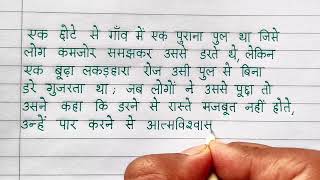 एक छोटे से गाँव में एक पुराना पुल था जिसे
लोग कमजोर समझकर उससे डरते थे, लेकिन
एक बूढ़ा लकड़हारा रोज उसी पुल से बिना
डरे गुजरता था ; जब लोगों ने उससे पूछा तो
उसने कहा कि डरने से रास्ते मजबूत नहीं होते,
उन्हें पार करने से आत्मविश्वास